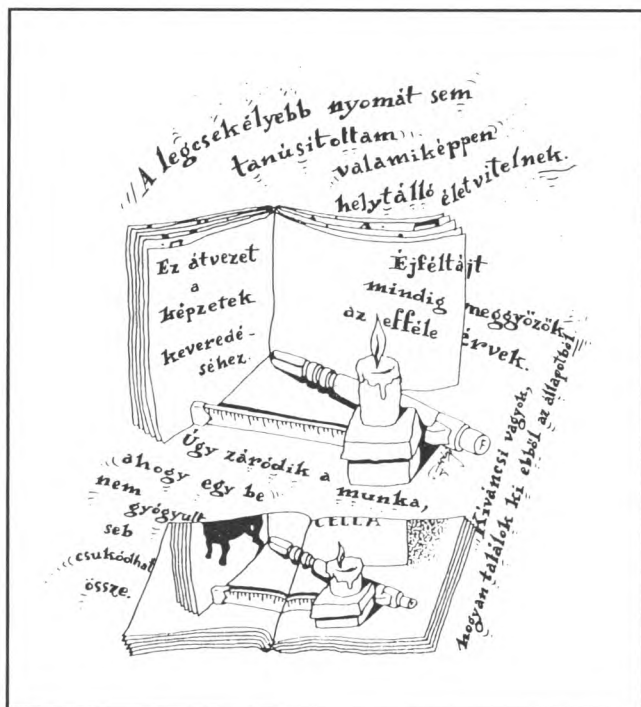 A legcsekélyebb nyomát sem
tanúsitottam
valamiképpen
helytálló életvitelnek.
Ez átvezet
a
képzetek
keveredé-
séhez.
Éjféltájt
mindig
az efféle
meggyőzök
érvek.
Úgy záródik a munka,
ahogy egy be
nem
gyógyult
seb
csukódhat
össze.
Kiváncsi vagyok,
hogyan találok ki ebből az állapotból
CELLA
F